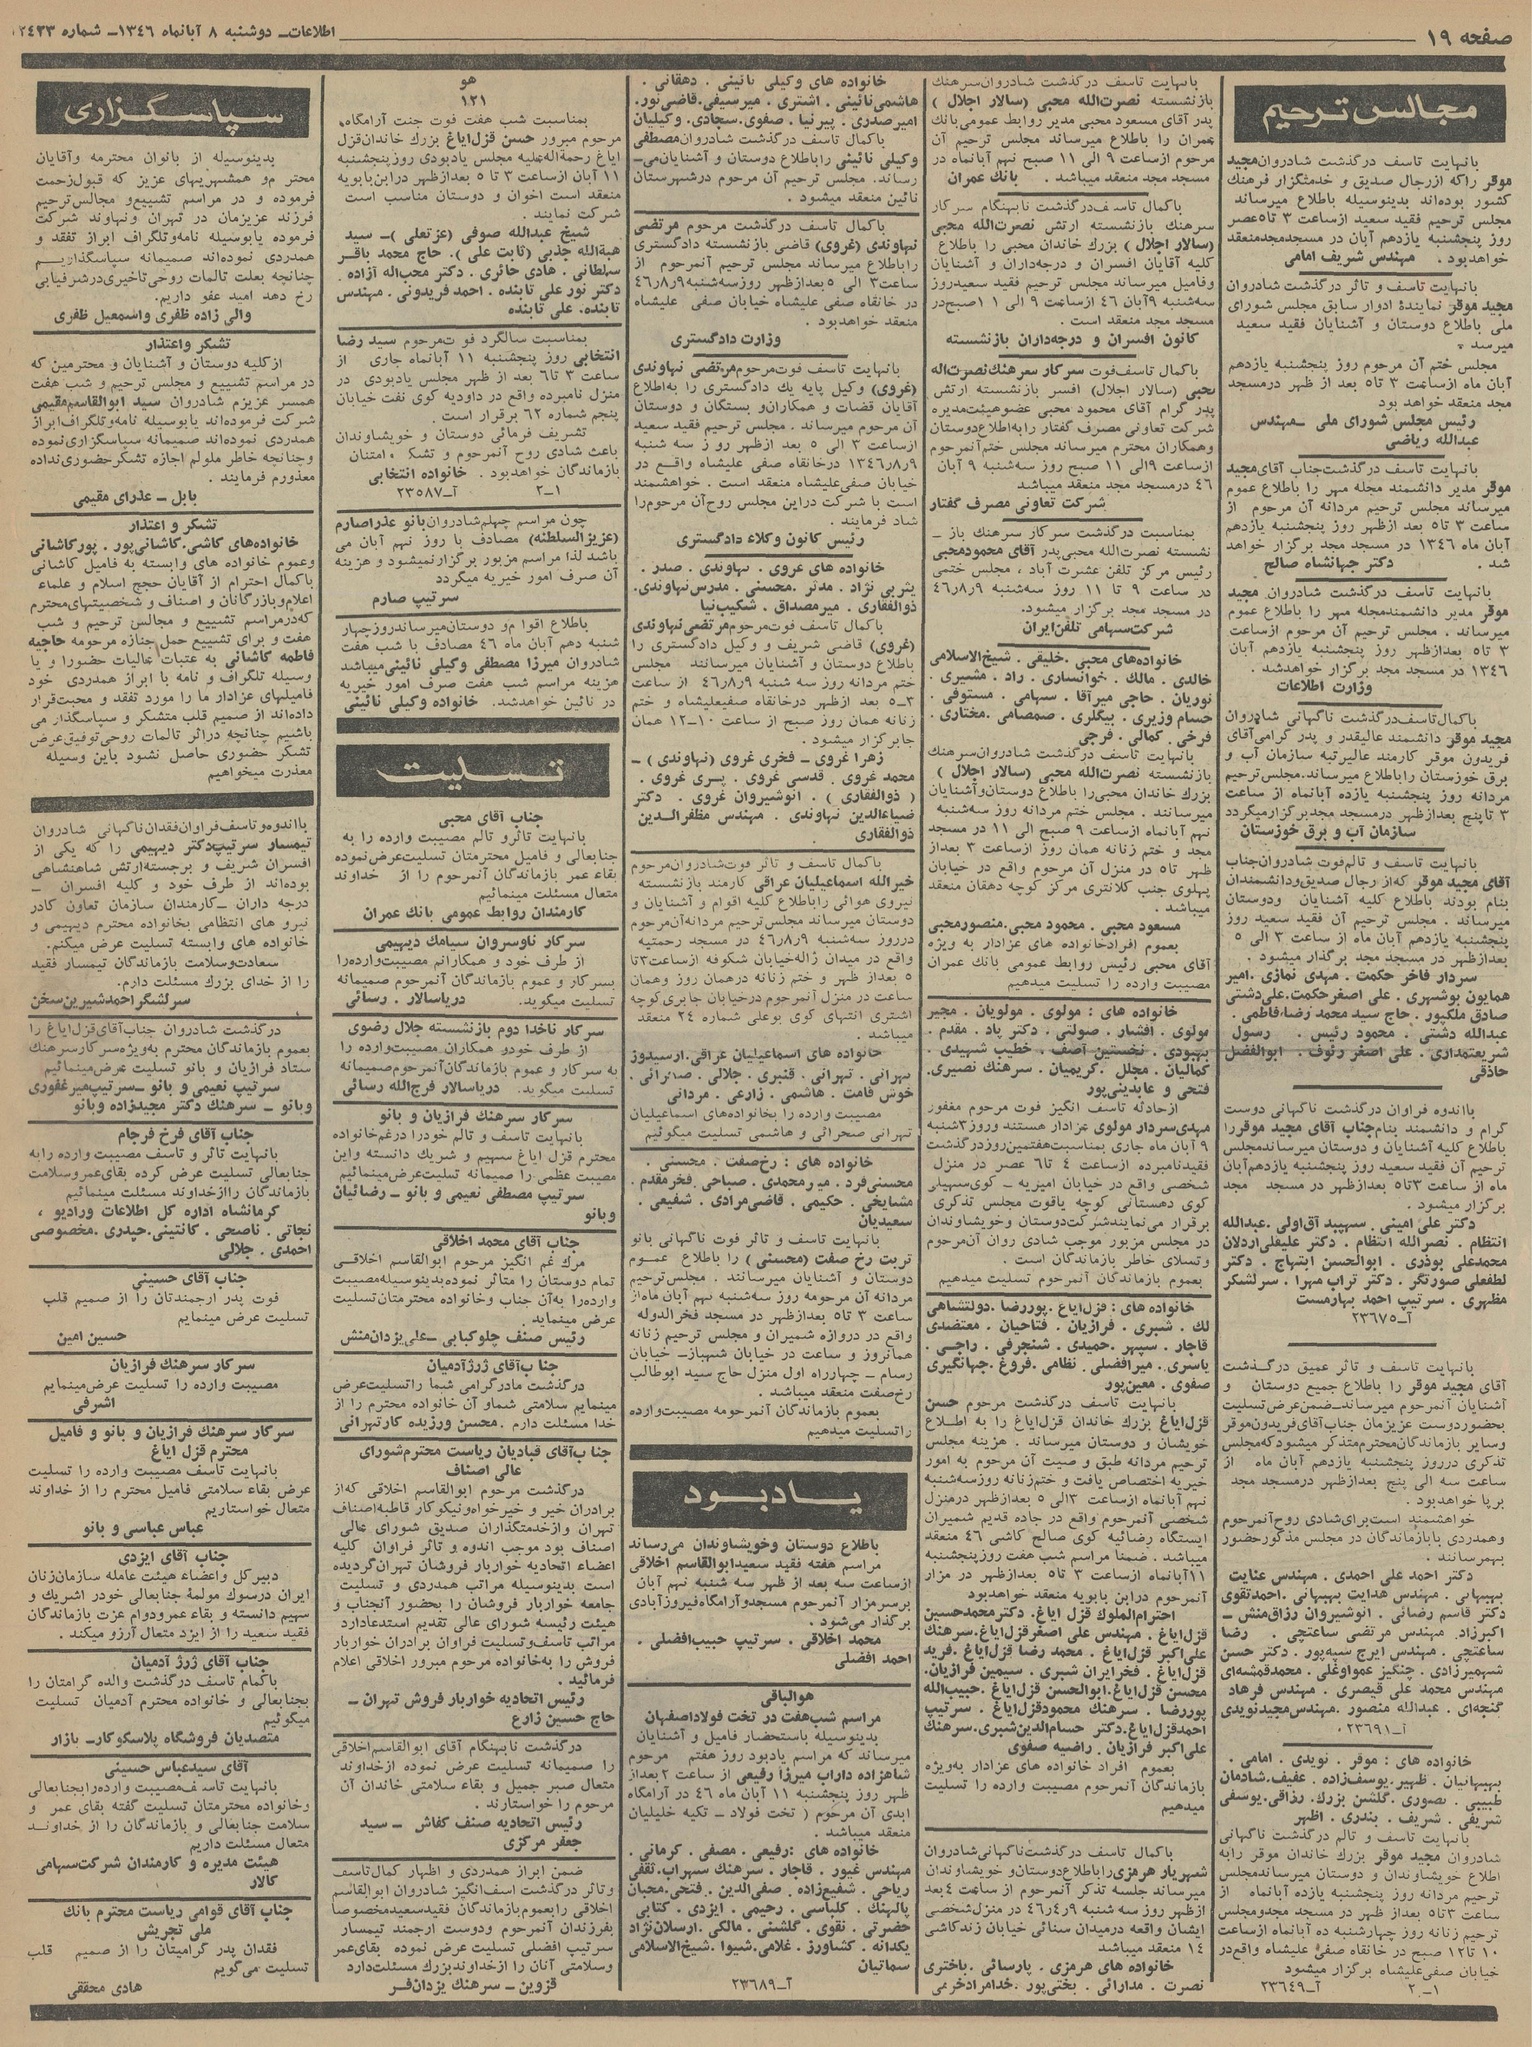 صفحه ۱۹
اطلاعات ـ دوشنبه ۸ آبانماه ۱۳۴۶ ـ شماره ۱۲۴۳۳
مجالس ترحیم
بانهایت تاسف درگذشت شادروان مجید
موقر راکه ازرجال صدیق و خدمتگزار فرهنگ
کشور بوده‌اند بدینوسیله باطلاع میرساند
مجلس ترحیم فقید سعید ازساعت ۳ تا۵عصر
روز پنجشنبه یازدهم آبان در مسجدمجدمنعقد
خواهدبود . مهندس شریف امامی
بانهایت تاسف و تاثر درگذشت شادروان
مجید موقر نمایندهٔ ادوار سابق مجلس شورای
ملی باطلاع دوستان و آشنایان فقید سعید
میرسد .
مجلس ختم آن مرحوم روز پنجشنبه یازدهم
آبان ماه ازساعت ۳ تا۵ بعد از ظهر درمسجد
مجد منعقد خواهد بود
رئیس مجلس شورای ملی ــ مهندس
عبدالله ریاضی
بانهایت تاسف درگذشت‌جناب آقای‌مجید
موقر مدیر دانشمند مجله مهر را باطلاع عموم
میرساند مجلس ترحیم مردانه آن مرحوم از
ساعت ۳ تا۵ بعد ازظهر روز پنجشنبه یازدهم
آبان ماه ۱۳۴۶ در مسجد مجد برگزار خواهد
شد . دکتر جهانشاه صالح
بانهایت تاسف درگذشت شادروان مجید
موقر مدیر دانشمندمجله مهر را باطلاع عموم
میرساند . مجلس ترحیم آن مرحوم ازساعت
۳ تا۵ بعدازظهر روز پنجشنبه یازدهم آبان
۱۳۴۶ در مسجد مجد برگزار خواهدشد .
وزارت اطلاعات
باکمال‌تاسف‌درگذشت ناگهانی شادروان
مجید موقر دانشمند عالیقدر و پدر گرامی‌آقای
فریدون موقر کارمند عالیرتبه سازمان آب و
برق خوزستان راباطلاع میرساند.مجلس‌ترحیم
مردانه روز پنجشنبه یازده آبانماه از ساعت
۳ تاپنج بعدازظهر درمسجد مجدبرگزارمیگردد
سازمان آب و برق خوزستان
بانهایت تاسف و تالم‌فوت شادروان‌جناب
آقای مجید موقر که‌از رجال صدیق‌ودانشمندان
بنام بودند باطلاع کلیه آشنایان ودوستان
میرساند . مجلس ترحیم آن فقید سعید روز
پنجشنبه یازدهم آبان ماه از ساعت ۳ الی ۵
بعدازظهر در مسجد مجد برگذار میشود .
سردار فاخر حکمت . مهدی نمازی . امیر
همایون بوشهری . علی اصغر حکمت . علی‌دشتی
صادق ملکپور . حاج سید محمد رضا فاطمی .
عبدالله دشتی . محمود رئیس . رسول
شریعتمداری . علی اصغر رئوف . ابوالفضل
حاذقی
بااندوه فراوان درگذشت ناگهانی دوست
گرام و دانشمند بنام‌جناب آقای مجید موقررا
باطلاع کلیه آشنایان و دوستان میرساندمجلس
ترحیم آن فقید سعید روز پنجشنبه یازدهم‌آبان
ماه از ساعت ۳تا۵ بعدازظهر در مسجد مجد
برگزار میشود .
دکتر علی امینی . سپهبد آق‌اولی . عبدالله
انتظام . نصرالله انتظام . دکتر علیقلی‌اردلان
محمدعلی بوذری . ابوالحسن ابتهاج . دکتر
لطفعلی صورتگر . دکتر تراب مهرا . سرلشکر
مظهری . سرتیپ احمد بهارمست
آ-۲۳۶۷۵
بانهایت تاسف و تاثر عمیق درگذشت
آقای مجید موقر را باطلاع جمیع دوستان و
آشنایان آنمرحوم میرساند ـ ضمن‌عرض‌تسلیت
بحضوردوست عزیزمان جناب‌آقای‌فریدون‌موقر
وسایر بازماندگان‌محترم‌متذکر میشودکه‌مجلس
تذکری درروز پنجشنبه یازدهم آبان ماه از
ساعت سه الی پنج بعدازظهر درمسجد مجد
برپا خواهدبود .
خواهشمند است‌برای‌شادی روح‌آنمرحوم
وهمدردی بابازماندگان در مجلس مذکورحضور
بهمرسانند .
دکتر احمد علی احمدی . مهندس عنایت
بهبهانی . مهندس هدایت بهبهانی . احمدتقوی
دکتر قاسم رضائی . انوشیروان رزاق‌منش ــ
اکبرزاد . مهندس مرتضی ساعتچی . رضا
ساعتچی . مهندس ایرج سیه‌پور . دکتر حسن
شهمیرزادی . چنگیز عمواوغلی . محمدقمشه‌ای
مهندس محمد علی قیصری . مهندس فرهاد
گنجه‌ای . عبدالله منصور . مهندس‌مجیدنویدی
آ-۲۳۶۹۱
خانواده های : موقر . نویدی . امامی .
بهبهانیان . ظهیر . یوسف‌زاده . عفیف . شادمان
طبیبی . تصوری . گلشن بزرك . رزاقی . یوسفی
شریفی . شریف . بندری . اظهر
بانهایت تاسف و تالم درگذشت ناگهانی
شادروان مجید موقر بزرك خاندان موقر رابه
اطلاع خویشاوندان و دوستان میرساندمجلس
ترحیم مردانه روز پنجشنبه یازده آبانماه از
ساعت ۳تا۵ بعد ازظهر در مسجد مجدومجلس
ترحیم زنانه روز چهارشنبه ده آبانماه ازساعت
۱۰ تا۱۲ صبح در خانقاه صفی علیشاه واقع‌در
خیابان صفی‌علیشاه برگزار میشود
۱-۲ آ-۲۳۶۴۹
بانهایت تاسف درگذشت شادروان‌سرهنك
بازنشسته نصرت‌الله محبی (سالار اجلال )
پدر آقای مسعود محبی مدیر روابط عمومی‌بانك
عمران را باطلاع میرساند مجلس ترحیم آن
مرحوم ازساعت ۹ الی ۱۱ صبح نهم آبانماه در
مسجد مجد منعقد میباشد . بانك عمران
باکمال تاسف درگذشت نابهنگام سرکار
سرهنك بازنشسته ارتش نصرت‌الله محبی
(سالار اجلال ) بزرك خاندان محبی را باطلاع
کلیه آقایان افسران و درجه‌داران و آشنایان
وفامیل میرساند مجلس ترحیم فقید سعیدروز
سه شنبه ۹ آبان ۴۶ ازساعت ۹ الی ۱۱صبح‌در
مسجد مجد منعقد است .
کانون افسران و درجه‌داران بازنشسته
باکمال تاسف‌فوت سرکار سرهنك‌نصرت‌الله
محبی (سالار اجلال) افسر بازنشسته ارتش
پدر گرام آقای محمود محبی عضوهیئت‌مدیره
شرکت تعاونی مصرف گفتار رابه‌اطلاع‌دوستان
وهمکاران محترم میرساند مجلس ختم‌آنمرحوم
ازساعت ۹الی ۱۱ صبح روز سه‌شنبه ۹ آبان
۴۶ درمسجد مجد منعقد میباشد
شرکت تعاونی مصرف گفتار
بمناسبت درگذشت سرکار سرهنك باز ـ
نشسته نصرت‌الله محبی‌پدر آقای محمودمحبی
رئیس مرکز تلفن عشرت آباد ، مجلس ختمی
در ساعت ۹ تا ۱۱ روز سه‌شنبه ۴۶٫۸٫۹
در مسجد مجد برگزار میشود.
شرکت‌سهامی تلفن‌ایران
خانواده‌های محبی . خلیقی . شیخ‌الاسلامی
خالدی . مالك . خوانساری . راد . مشیری .
نوریان . حاجی میرآقا . سهامی . مستوفی .
حسام وزیری . بیگلری . صمصامی . مختاری .
فرخی . کمالی . فرجی
بانهایت تاسف درگذشت شادروان‌سرهنك
بازنشسته نصرت‌الله محبی (سالار اجلال )
بزرك خاندان محبی‌را باطلاع دوستان‌وآشنایان
میرسانند . مجلس ختم مردانه روز سه‌شنبه
نهم آبانماه از ساعت ۹ صبح الی ۱۱ در مسجد
مجد و ختم زنانه همان روز از ساعت ۳ بعداز
ظهر تا۵ در منزل آن مرحوم واقع در خیابان
پهلوی جنب کلانتری مرکز کوچه دهقان منعقد
میباشد .
مسعود محبی . محمود محبی . منصورمحبی
بعموم افرادخانواده های عزادار به ویژه
آقای محبی رئیس روابط عمومی بانك عمران
مصیبت وارده را تسلیت میدهیم
خانواده های : مولوی . مولویان . مجیر
مولوی . افشار . صولتی . دکتر پاد . مقدم .
بهبودی . نخستین آصف . خطیب شهیدی .
کمالیان . مجلل . کریمیان . سرهنك نصیری .
فتحی و عابدینی‌پور
ازحادثه تاسف انگیز فوت مرحوم مغفور
مهدی‌سردار مولوی عزادار هستند وروز ۳شنبه
۹ آبان ماه جاری بمناسبت‌هفتمین‌روزدرگذشت
فقیدنامبرده ازساعت ۴ تا۶ عصر در منزل
شخصی واقع در خیابان امیریه ـ کوی‌سهیلی
کوی دهستانی کوچه یاقوت مجلس تذکری
برقرار می‌نمایندشرکت‌دوستان وخویشاوندان
در مجلس مزبور موجب شادی روان آن‌مرحوم
وتسلای خاطر بازماندگان است .
بعموم بازماندگان آنمرحوم تسلیت میدهیم
خانواده های : قزل‌ایاغ . پوررضا . دولتشاهی
لك . شبری . فرازیان . فتاحیان . معتضدی
قاجار . سپهر . حمیدی . شنجرفی . راجی .
یاسری . میرافضلی . نظامی . فروغ . جهانگیری
صفوی . معین‌پور
بانهایت تاسف درگذشت مرحوم حسن
قزل‌ایاغ بزرك خاندان قزل‌ایاغ را به اطلاع
خویشان و دوستان میرساند . هزینه مجلس
ترحیم مردانه طبق و صیت آن مرحوم به امور
خیریه اختصاص یافت و ختم‌زنانه روزسه‌شنبه
نهم آبانماه ازساعت ۳الی ۵ بعدازظهر درمنزل
شخصی آنمرحوم واقع در جاده قدیم شمیران
ایستگاه رضائیه کوی صالح کاشی ۴۶ منعقد
میباشد . ضمنا مراسم شب هفت روزپنجشنبه
۱۱آبانماه ازساعت ۳ تا۵ بعدازظهر در مزار
آنمرحوم درابن بابویه منعقد خواهدبود
احترام‌الملوك قزل ایاغ . دکترمحمدحسین
قزل‌ایاغ . مهندس علی اصغرقزل‌ایاغ.سرهنك
علی‌اکبر قزل‌ایاغ . محمد رضا قزل‌ایاغ . فرید
قزل‌ایاغ . فخرایران شبری . سیمین فرازیان .
محسن قزل‌ایاغ . ابوالحسن قزل‌ایاغ . حبیب‌الله
پوررضا . سرهنك محمودقزل‌ایاغ . سرتیپ
احمدقزل‌ایاغ . دکتر حسام‌الدین‌شبری.سرهنك
علی‌اکبر فرازیان . راضیه صفوی
بعموم افراد خانواده های عزادار به‌ویژه
بازماندگان آنمرحوم مصیبت وارده را تسلیت
میدهیم
باکمال تاسف درگذشت‌ناگهانی‌شادروان
شهریار هرمزی‌راباطلاع‌دوستان‌و خویشاوندان
میرساند جلسه تذکر آنمرحوم از ساعت ۴بعد
ازظهر روز سه‌شنبه در منزل‌شخصی
ایشان واقعه درمیدان سنائی خیابان زندکاشی
۱۴ منعقد میباشد
خانواده های هرمزی . پارسائی . باختری
نصرت . مدارائی . بختی‌پور . خدامرادخرمی
خانواده های وکیلی نائینی . دهقانی .
هاشمی‌نائینی . اشتری . میرسیفی . قاضی‌نور.
امیرصدری . پیرنیا . صفوی . سجادی . وکیلیان
باکمال تاسف درگذشت شادروان‌مصطفی
وکیلی نائینی راباطلاع دوستان و آشنایان‌می‌ـ
رساند. مجلس ترحیم آن مرحوم درشهرستان
نائین منعقد میشود .
باکمال تاسف درگذشت مرحوم مرتضی
نهاوندی (غروی) قاضی بازنشسته دادگستری
راباطلاع میرساند مجلس ترحیم آنمرحوم از
ساعت۳ الی ۵بعد ازظهر روزسه‌شنبه۴۶٫۸٫۹
در خانقاه صفی علیشاه خیابان صفی علیشاه
منعقد خواهدبود .
وزارت دادگستری
بانهایت تاسف فوت مرحوم‌مرتضی نهاوندی
(غروی) وکیل پایه یك دادگستری را به‌اطلاع
آقایان قضات و همکاران‌و بستگان و دوستان
آن مرحوم میرساند . مجلس ترحیم فقید سعید
ازساعت ۳ الی ۵ بعد ازظهر روز سه شنبه
۱۳۴۶٫۸٫۹ درخانقاه صفی علیشاه واقع در
خیابان صفی‌علیشاه منعقد است . خواهشمند
است با شرکت دراین مجلس روح‌آن مرحوم‌را
شاد فرمایند .
رئیس کانون وکلاء دادگستری
خانواده های غروی . نهاوندی . صدر .
یثربی نژاد . مدثر . محسنی . مدرس‌نهاوندی.
ذوالفقاری . میرمصداق . شکیب‌نیا
باکمال تاسف فوت مرحوم‌مرتضی‌نهاوندی
(غروی) قاضی شریف و وکیل دادگستری را
باطلاع دوستان و آشنایان میرسانند مجلس
ختم مردانه روز سه شنبه ۴۶٫۸٫۹ از ساعت
۳-۵ بعد ازظهر درخانقاه صفیعلیشاه و ختم
زنانه همان روز صبح از ساعت ۱۰-۱۲ همان
جابرگزار میشود .
زهرا غروی ـ فخری غروی (نهاوندی ) ـ
محمد غروی . قدسی غروی . پری غروی .
( ذوالفقاری ) . انوشیروان غروی . دکتر
ضیاءالدین نهاوندی . مهندس مظفرالدین
ذوالفقاری
باکمال تاسف و تاثر فوت‌شادروان‌مرحوم
خیرالله اسماعیلیان عراقی کارمند بازنشسته
نیروی هوائی راباطلاع کلیه اقوام و آشنایان و
دوستان میرساند مجلس‌ترحیم مردانه‌آن‌مرحوم
درروز سه‌شنبه ۴۶٫۸٫۹ در مسجد رحمتیه
واقع در میدان ژاله‌خیابان شکوفه ازساعت۳تا
۵ بعداز ظهر و ختم زنانه درهمان روز وهمان
ساعت در منزل آنمرحوم درخیابان جابری‌کوچه
اشتری انتهای کوی بوعلی شماره ۲۴ منعقد
میباشد .
خانواده های اسماعیلیان عراقی.ارسیدوز
تهرانی . تهرانی . قنبری . جلالی . صحرائی .
خوش قامت . هاشمی . زارعی . مردانی
مصیبت وارده را بخانواده‌های اسماعیلیان
تهرانی صحرائی و هاشمی تسلیت میگوئیم
خانواده های : رخ‌صفت . محسنی .
محسنی‌فرد . میرمحمدی . صباحی . فخرمقدم .
مشایخی . حکیمی . قاضی‌مرادی . شفیعی .
سعیدیان
بانهایت تاسف و تاثر فوت ناگهانی بانو
تربت رخ صفت (محسنی ) را باطلاع عموم
دوستان و آشنایان میرسانند . مجلس‌ترحیم
مردانه آن مرحومه روز سه‌شنبه نهم آبان ماه‌از
ساعت ۳ تا۵ بعدازظهر در مسجد فخرالدوله
واقع در دروازه شمیران و مجلس ترحیم زنانه
همانروز و ساعت در خیابان شهباز ـ خیابان
رسام ـ چهارراه اول منزل حاج سید ابوطالب
رخ‌صفت منعقد میباشد .
بعموم بازماندگان آنمرحومه مصیبت‌وارده
راتسلیت میدهیم
یـادبـود
باطلاع دوستان وخویشاوندان می‌رساند
مراسم هفته فقید سعیدابوالقاسم اخلاقی
ازساعت سه بعد از ظهر سه شنبه نهم آبان
برسرمزار آنمرحوم مسجدوآرامگاه‌فیروزآبادی
برگذار می‌شود .
محمد اخلاقی . سرتیپ حبیب‌افضلی .
احمد افضلی
هوالباقی
مراسم شب‌هفت در تخت فولاداصفهان
بدینوسیله باستحضار فامیل و آشنایان
میرساند که مراسم یادبود روز هفتم مرحوم
شاهزاده داراب میرزا رفیعی از ساعت ۲بعداز
ظهر روز پنجشنبه ۱۱ آبان ماه ۴۶ در آرامگاه
ابدی آن مرحوم ( تخت فولاد ـ تکیه خلیلیان
منعقد میباشد .
خانواده های : رفیعی . مصفی . کرمانی .
مهندس غیور . قاجار . سرهنك سهراب.ثقفی
ریاحی . شفیع‌زاده . صفی‌الدین . فتحی.محبان
پالهنك . کلباسی . رحیمی . ایزدی . کتابی
حضرتی . نقوی . گلشنی . مالکی . ارسلان‌نژاد
یکدانه . کشاورز . غلامی.شیوا . شیخ‌الاسلامی
سماتیان
آ-۲۳۶۸۹
هو
۱۲۱
بمناسبت شب هفت فوت جنت آرامگاه،
مرحوم مبرور حسن قزل‌ایاغ بزرك خاندان‌قزل
ایاغ رحمةاله‌علیه مجلس یادبودی روزپنجشنبه
۱۱ آبان ازساعت ۳ تا ۵ بعدازظهر درابن‌بابویه
منعقد است اخوان و دوستان مناسب است
شرکت نمایند .
شیخ عبدالله صوفی (عزتعلی) ـ سید
هبةالله جذبی (ثابت علی) . حاج محمد باقر
سلطانی . هادی حائری . دکتر محب‌اله آزاده .
دکتر نور علی تابنده . احمد فریدونی . مهندس
تابنده . علی تابنده
بمناسبت سالگرد فوت‌مرحوم سید رضا
انتخابی روز پنجشنبه ۱۱ آبانماه جاری از
ساعت ۳ تا۶ بعد از ظهر مجلس یادبودی در
منزل نامبرده واقع در داودیه کوی نفت خیابان
پنجم شماره ۶۲ برقرار است .
تشریف فرمائی دوستان و خویشاوندان
باعث شادی روح آنمرحوم و تشکر و امتنان
بازماندگان خواهدبود . خانواده انتخابی
۱-۲ آ-۲۳۵۸۷
چون مراسم چهلم‌شادروان‌بانو عذراصارم
(عزیزالسلطنه) مصادف با روز نهم آبان می
باشد لذا مراسم مزبور برگزارنمیشود و هزینه
آن صرف امور خیریه میگردد
سرتیپ صارم
باطلاع اقوام و دوستان‌میرساندروزچهار
شنبه دهم آبان ماه ۴۶ مصادف با شب هفت
شادروان میرزا مصطفی وکیلی نائینی‌میباشد
هزینه مراسم شب هفت صرف امور خیریه
در نائین خواهدشد. خانواده وکیلی نائینی
تسلیت
جناب آقای محبی
بانهایت تاثرو تالم مصیبت وارده را به
جنابعالی و فامیل محترمتان تسلیت‌عرض‌نموده
بقاء عمر بازماندگان آنمرحوم را از خداوند
متعال مسئلت مینمائیم
کارمندان روابط عمومی بانك عمران
سرکار ناوسروان سیامك دیهیمی
از طرف خود و همکارانم مصیبت‌وارده‌را
بسرکار و عموم بازماندگان آنمرحوم صمیمانه
تسلیت میگوید. دریاسالار . رسائی
سرکار ناخدا دوم بازنشسته جلال رضوی
از طرف خودو همکاران مصیبت‌وارده را
به سرکار و عموم بازماندگان‌آنمرحوم‌صمیمانه
تسلیت میگوید. دریاسالار فرج‌الله رسائی
سرکار سرهنك فرازیان و بانو
بانهایت تاسف و تالم خودرا درغم‌خانواده
محترم قزل ایاغ سهیم و شریك دانسته واین
مصیبت عظمی‌را صمیمانه تسلیت‌عرض‌مینمائیم
سرتیپ مصطفی نعیمی و بانو ـ رضائیان
وبانو
جناب آقای محمد اخلاقی
مرك غم انگیز مرحوم ابوالقاسم اخلاقی
تمام دوستان را متاثر نموده‌بدینوسیله‌مصیبت
وارده‌را به‌آن جناب وخانواده محترمتان‌تسلیت
عرض مینماید .
رئیس صنف چلوکبابی ـ علی‌یزدان‌منش
جناب‌آقای ژرژآدمیان
درگذشت مادرگرامی شما راتسلیت‌عرض
مینمایم سلامتی شماو آن خانواده محترم را از
خدا مسئلت دارم . محسن ورزیده کارتهرانی
جناب‌آقای قبادیان ریاست محترم‌شورای
عالی اصناف
درگذشت مرحوم ابوالقاسم اخلاقی که‌از
برادران خیر و خیرخواه‌ونیکوکار قاطبه‌اصناف
تهران وازخدمتگذاران صدیق شورای عالی
اصناف بود موجب اندوه و تاثر فراوان کلیه
اعضاء اتحادیه خواربار فروشان تهران‌گردیده
است بدینوسیله مراتب همدردی و تسلیت
جامعه خواربار فروشان را بحضور آنجناب و
هیئت رئیسه شورای عالی تقدیم استدعادارد
مراتب تاسف‌وتسلیت فراوان برادران خواربار
فروش را به‌خانواده مرحوم مبرور اخلاقی اعلام
فرمائید .
رئیس اتحادیه خواربار فروش تهران ـ
حاج حسین زارع
درگذشت نابهنگام آقای ابوالقاسم‌اخلاقی
را صمیمانه تسلیت عرض نموده ازخداوند
متعال صبر جمیل و بقاء سلامتی خاندان آن
مرحوم را خواستارند .
رئیس اتحادیه صنف کفاش ـ سید
جعفر مرکزی
ضمن ابراز همدردی و اظهار کمال‌تاسف
وتاثر درگذشت اسف‌انگیز شادروان ابوالقاسم
اخلاقی رابعموم بازماندگان فقیدسعیدمخصوصا
بفرزندان آنمرحوم ودوست ارجمند تیمسار
سرتیپ افضلی تسلیت عرض نموده بقای‌عمر
وسلامتی آنان را ازخداوندبزرك مسئلت‌دارد
قزوین ـ سرهنك یزدان‌فر
سپاسگزاری
بدینوسیله از بانوان محترمه وآقایان
محترم و همشهریهای عزیز که قبول‌زحمت
فرموده و در مراسم تشییع‌و مجالس‌ترحیم
فرزند عزیزمان در تهران ونهاوند شرکت
فرموده یابوسیله نامه‌و تلگراف ابراز تفقد و
همدردی نموده‌اند صمیمانه سپاسگذاریم
چنانچه بعلت تالمات روحی‌تاخیری‌درشرفیابی
رخ دهد امید عفو داریم.
والی زاده ظفری واسمعیل ظفری
تشکر واعتذار
ازکلیه دوستان و آشنایان و محترمین که
در مراسم تشییع و مجلس ترحیم و شب هفت
همسر عزیزم شادروان سید ابوالقاسم‌مقیمی
شرکت فرموده‌اند یابوسیله نامه‌وتلگراف‌ابراز
همدردی نموده‌اند صمیمانه سپاسگزاری‌نموده
وچنانچه خاطر ملولم اجازه تشکرحضوری‌نداده
معذورم فرمایند .
بابل ـ عذرای مقیمی
تشکر و اعتذار
خانواده‌های کاشی.کاشانی‌پور . پورکاشانی
وعموم خانواده های وابسته به فامیل کاشانی
باکمال احترام از آقایان حجج اسلام و علماء
اعلام‌وبازرگانان و اصناف و شخصیتهای‌محترم
که‌درمراسم تشییع و مجالس ترحیم و شب
هفت و برای تشییع حمل جنازه مرحومه حاجیه
فاطمه کاشانی به عتبات عالیات حضورا و یا
وسیله تلگراف و نامه با ابراز همدردی خود
فامیلهای عزادار ما را مورد تفقد و محبت‌قرار
داده‌اند از صمیم قلب متشکر و سپاسگذار می
باشیم چنانچه دراثر تالمات روحی‌توفیق‌عرض
تشکر حضوری حاصل نشود باین وسیله
معذرت میخواهیم
بااندوه‌و تاسف‌فراوان‌فقدان‌ناگهانی شادروان
تیمسار سرتیپ‌دکتر دیهیمی را که یکی از
افسران شریف و برجسته‌ارتش شاهنشاهی
بوده‌اند از طرف خود و کلیه افسران ـ
درجه داران ـ کارمندان سازمان تعاون کادر
نیرو های انتظامی بخانواده محترم دیهیمی و
خانواده های وابسته تسلیت عرض میکنم.
سعادت‌وسلامت بازماندگان تیمسار فقید
را از خدای بزرك مسئلت دارم.
سرلشگراحمدشیرین‌سخن
درگذشت شادروان جناب‌آقای‌قزل‌ایاغ را
بعموم بازماندگان محترم به‌ویژه سرکارسرهنك
ستاد فرازیان و بانو تسلیت عرض‌مینمائیم
سرتیپ نعیمی و بانو ـ سرتیپ‌میرغفوری
وبانو ـ سرهنك دکتر مجیدزاده وبانو
جناب آقای فرخ فرجام
بانهایت تاثر و تاسف مصیبت وارده رابه
جنابعالی تسلیت عرض کرده بقای‌عمروسلامت
بازماندگان راازخداوند مسئلت مینمائیم
کرمانشاه اداره کل اطلاعات ورادیو ،
نجاتی . ناصحی . کاتئینی.حیدری.مخصوصی
احمدی . جلالی
جناب آقای حسینی
فوت پدر ارجمندتان را از صمیم قلب
تسلیت عرض مینمایم
حسین امین
سرکار سرهنك فرازیان
مصیبت وارده را تسلیت عرض‌مینمایم
اشرفی
سرکار سرهنك فرازیان و بانو و فامیل
محترم قزل ایاغ
بانهایت تاسف مصیبت وارده را تسلیت
عرض بقاء سلامتی فامیل محترم را از خداوند
متعال خواستاریم
عباس عباسی و بانو
جناب آقای ایزدی
دبیرکل واعضاء هیئت عامله سازمان‌زنان
ایران درسوك مولمهٔ جنابعالی خودر اشریك و
سهیم دانسته و بقاء عمرودوام عزت بازماندگان
فقید سعید را از ایزد متعال آرزو میکند .
جناب آقای ژرژ آدمیان
باکمام تاسف درگذشت والده گرامتان را
بجنابعالی و خانواده محترم آدمیان تسلیت
میگوئیم
متصدیان فروشگاه پلاسکوکار ـ بازار
آقای سیدعباس حسینی
بانهایت تاسف‌مصیبت وارده‌رابجنابعالی
وخانواده محترمتان تسلیت گفته بقای عمر و
سلامت جنابعالی و بازماندگان را از خداوند
متعال مسئلت داریم
هیئت مدیره و کارمندان شرکت‌سهامی
کالار
جناب آقای قوامی ریاست محترم بانك
ملی تجریش
فقدان پدر گرامیتان را از صمیم قلب
تسلیت می‌گویم
هادی محققی